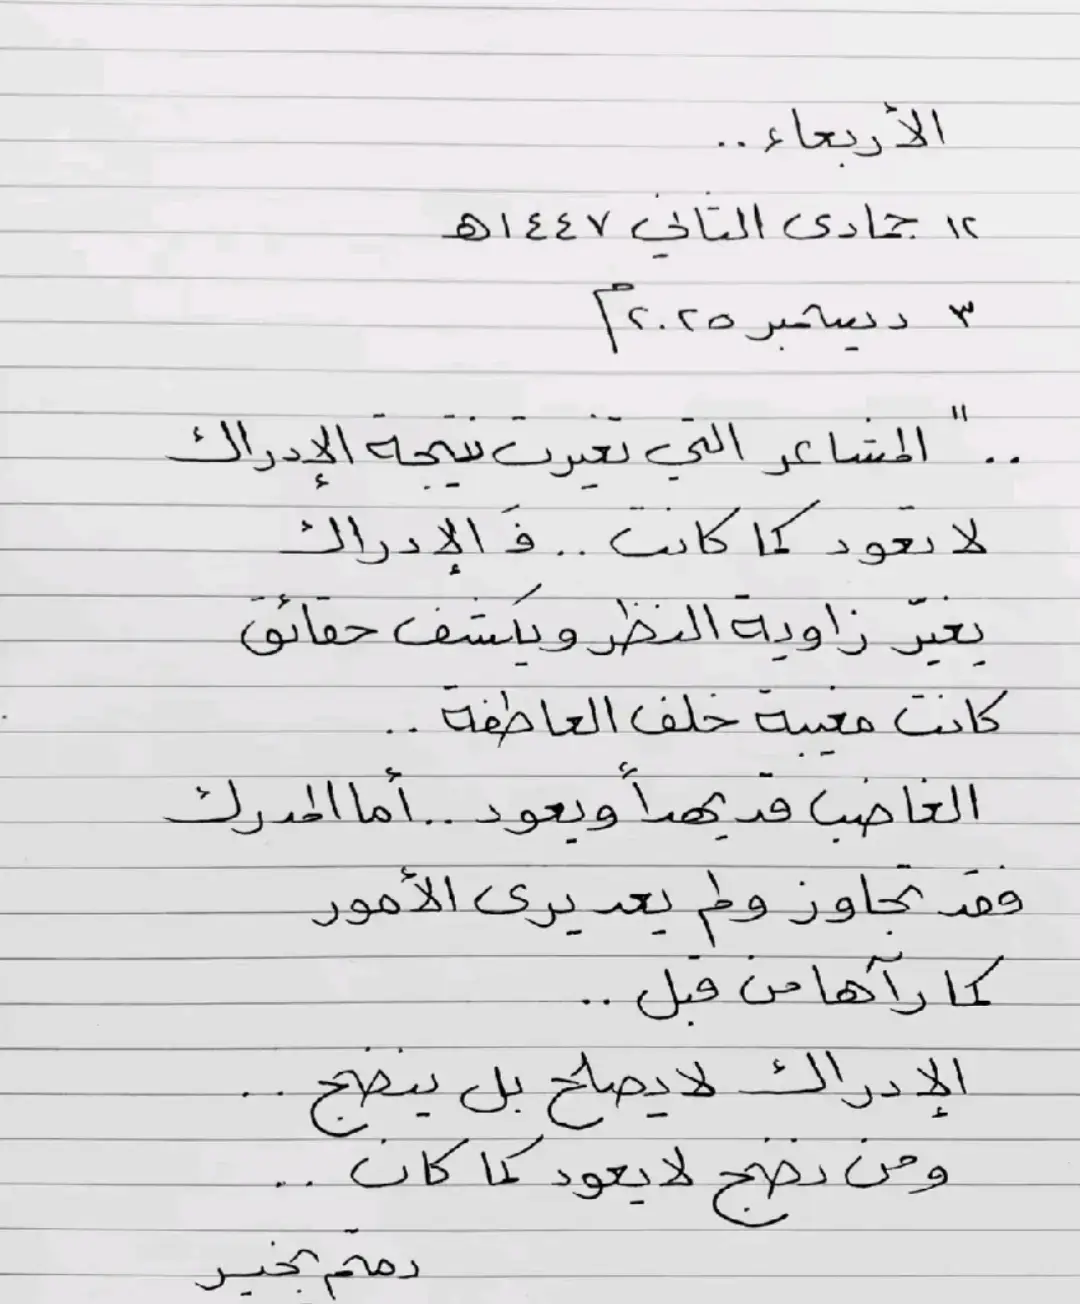 الأربعاء..
١٢ جمادى الثاني ١٤٤٧هـ
٣ ديسمبر ٢٠٢٥م
.." المشاعر التي تغيرت نتيجة الإدراك
لا تعود كما كانت .. فَ الإدراك
يغيّر زاوية النظر ويكشف حقائق
كانت مغيبة خلف العاطفة ..
الغاضب قد يهدأ ويعود .. أما المدرك
فقد تجاوز ولم يعد يرى الأمور
كما رآها من قبل ..
الإدراك لا يصلح بل ينضج ..
ومن نضج لا يعود كما كان ..
دمتم بخير